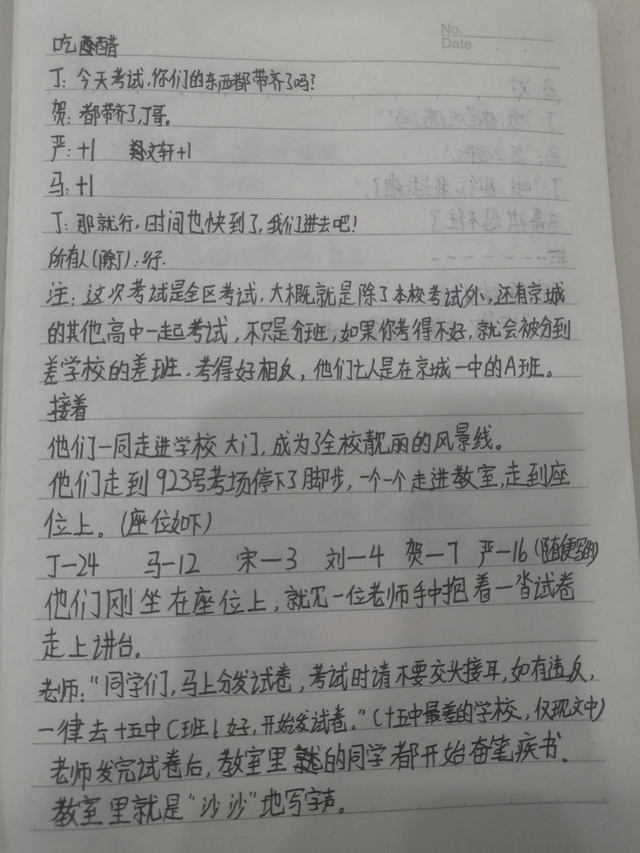 No.
Date
吃醋
丁：今天考试，你们的东西都带齐了吗？
贺：都带齐了，丁哥。
严：+1 文轩+1
马：+1
丁：那就行，时间也快到了，我们进去吧！
所有人(除丁)：行.
注：这次考试是全区考试，大概就是除了本校考试外，还有京城
的其他高中一起考试，不只是分班，如果你考得不好，就会被分到
差学校的差班.考得好相反，他们七人是在京城一中的A班。
接着
他们一同走进学校大门，成为了全校靓丽的风景线。
他们走到923号考场停下了脚步，一个一个走进教室，走到座
位上。(座位如下)
丁—24 马—12 宋—3 刘—4 贺—7 严—16(随便写的)
他们刚坐在座位上，就见一位老师手中抱着一沓试卷
走上讲台。
老师："同学们，马上分发试卷，考试时请不要交头接耳，如有违反，
一律去十五中C班！好，开始发试卷。"(十五中最差的学校，仅现文中)
老师发完试卷后，教室里的同学都开始奋笔疾书.
教室里就是"沙沙"地写字声。